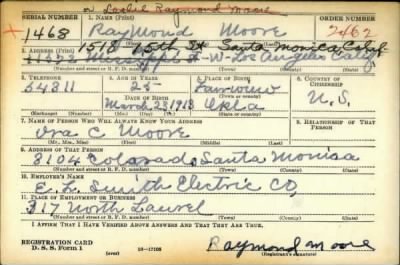 or Leslie Raymond Moore
SERIAL NUMBER 1. NAME (Print) ORDER NUMBER
1468 Raymond Moore 2462
1513 15th St Santa Monica Calif
2. ADDRESS (Print)
W- Los Angeles Calif
(Number and street or R. F. D. number) (Town) (County) (State)
3. TELEPHONE 4. AGE IN YEARS 5. PLACE OF BIRTH 6. COUNTRY OF CITIZENSHIP
54811 25 Fairview
DATE OF BIRTH (Town or county)
March 23 1913 Okla U.S.
(Mo.) (Day) (Yr.) (State or country)
7. NAME OF PERSON WHO WILL ALWAYS KNOW YOUR ADDRESS 8. RELATIONSHIP OF THAT PERSON
Ora C Moore
9. ADDRESS OF THAT PERSON
3104 Colorado, Santa Monica
(Number and street or R. F. D. number) (Town) (County) (State)
10. EMPLOYER'S NAME
E. L. Smith Electric CO,
11. PLACE OF EMPLOYMENT OR BUSINESS
317 North Laurel
(Number and street or R. F. D. number) (Town) (County) (State)
I AFFIRM THAT I HAVE VERIFIED ABOVE ANSWERS AND THAT THEY ARE TRUE.
REGISTRATION CARD
D. S. S. Form 1 (over) 16-17105 Raymond Moore
(Registrant's signature)